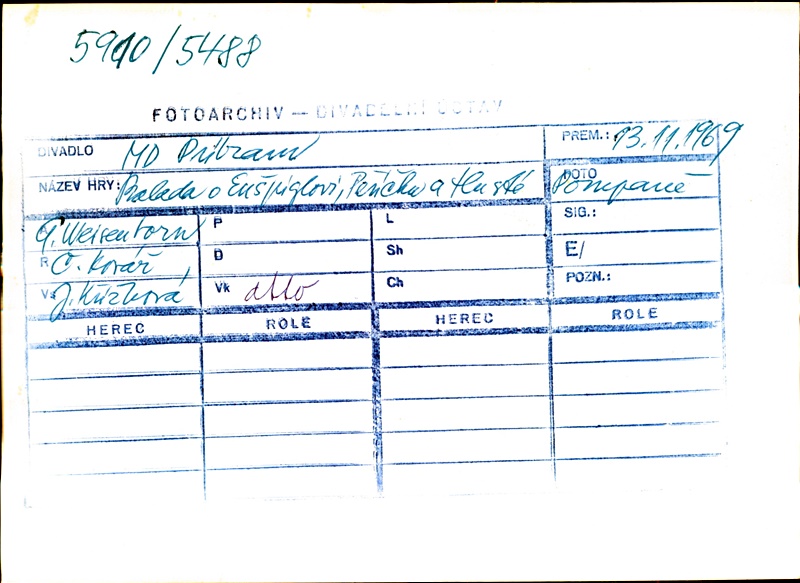 5910/5488
FOTOARCHIV — DIVADELNÍ ÚSTAV
DIVADLO MD Příbram PREM.: 13.11.1969
NÁZEV HRY: Balada o Enšpíglovi, Peřičku a tlusté Pompaně FOTO
G. Weisenborn P L SIG.:
R O. Kovář D Sh E/
Vs J. Křížková Vk dtto Ch POZN.:
HEREC ROLE HEREC ROLE